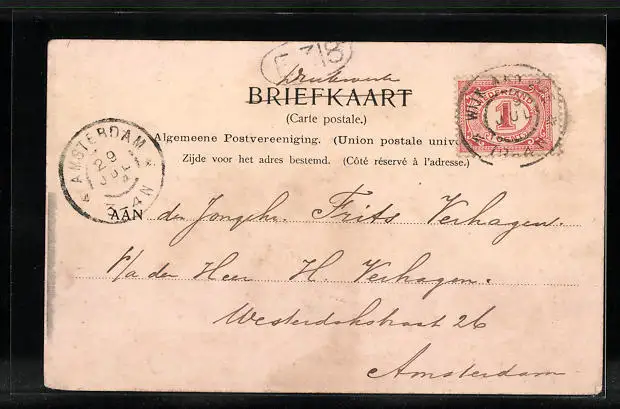 F 318
Drukwerk
BRIEFKAART
(Carte postale.)
Algemeene Postvereeniging. (Union postale unive
Zijde voor het adres bestemd. (Côté réservé à l'adresse.)
NEDERLAND
1
AMSTERDAM
29
JUL
AAN den Jongeh. Frits Verhagen.
p/a den Heer H. Verhagen.
Westerdokstraat 26
Amsterdam